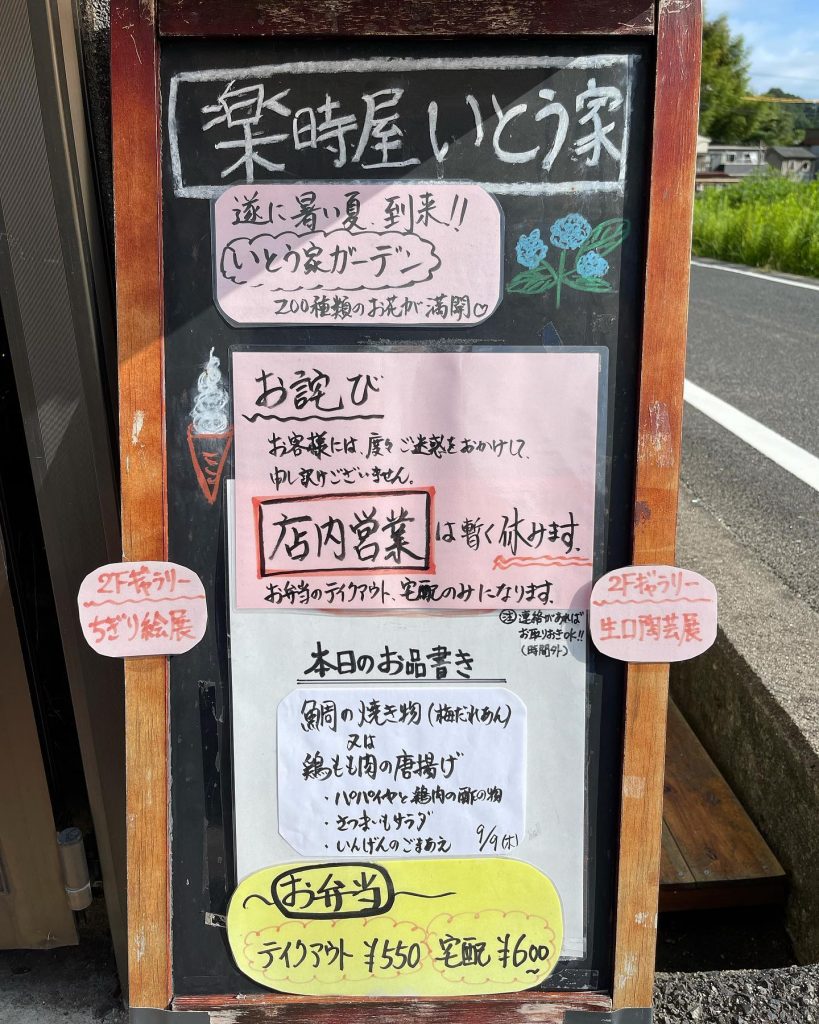 楽時屋いとう家
遂に暑い夏、到来!!
いとう家ガーデン
200種類のお花が満開♡
お詫び
お客様には、度々ご迷惑をおかけして、
申し訳ございません。
店内営業は暫く休みます。
お弁当のテイクアウト、宅配のみになります。
注 連絡があれば
お取りおきOK!!
(時間外)
2Fギャラリー
ちぎり絵展
2Fギャラリー
生口陶芸展
本日のお品書き
鯛の焼き物(梅だれあん)
又は
鶏もも肉の唐揚げ
・パパイヤと鶏肉の酢の物
・さつまいもサラダ
・いんげんのごまあえ
9/9(木)
お弁当
テイクアウト ¥550 宅配 ¥600